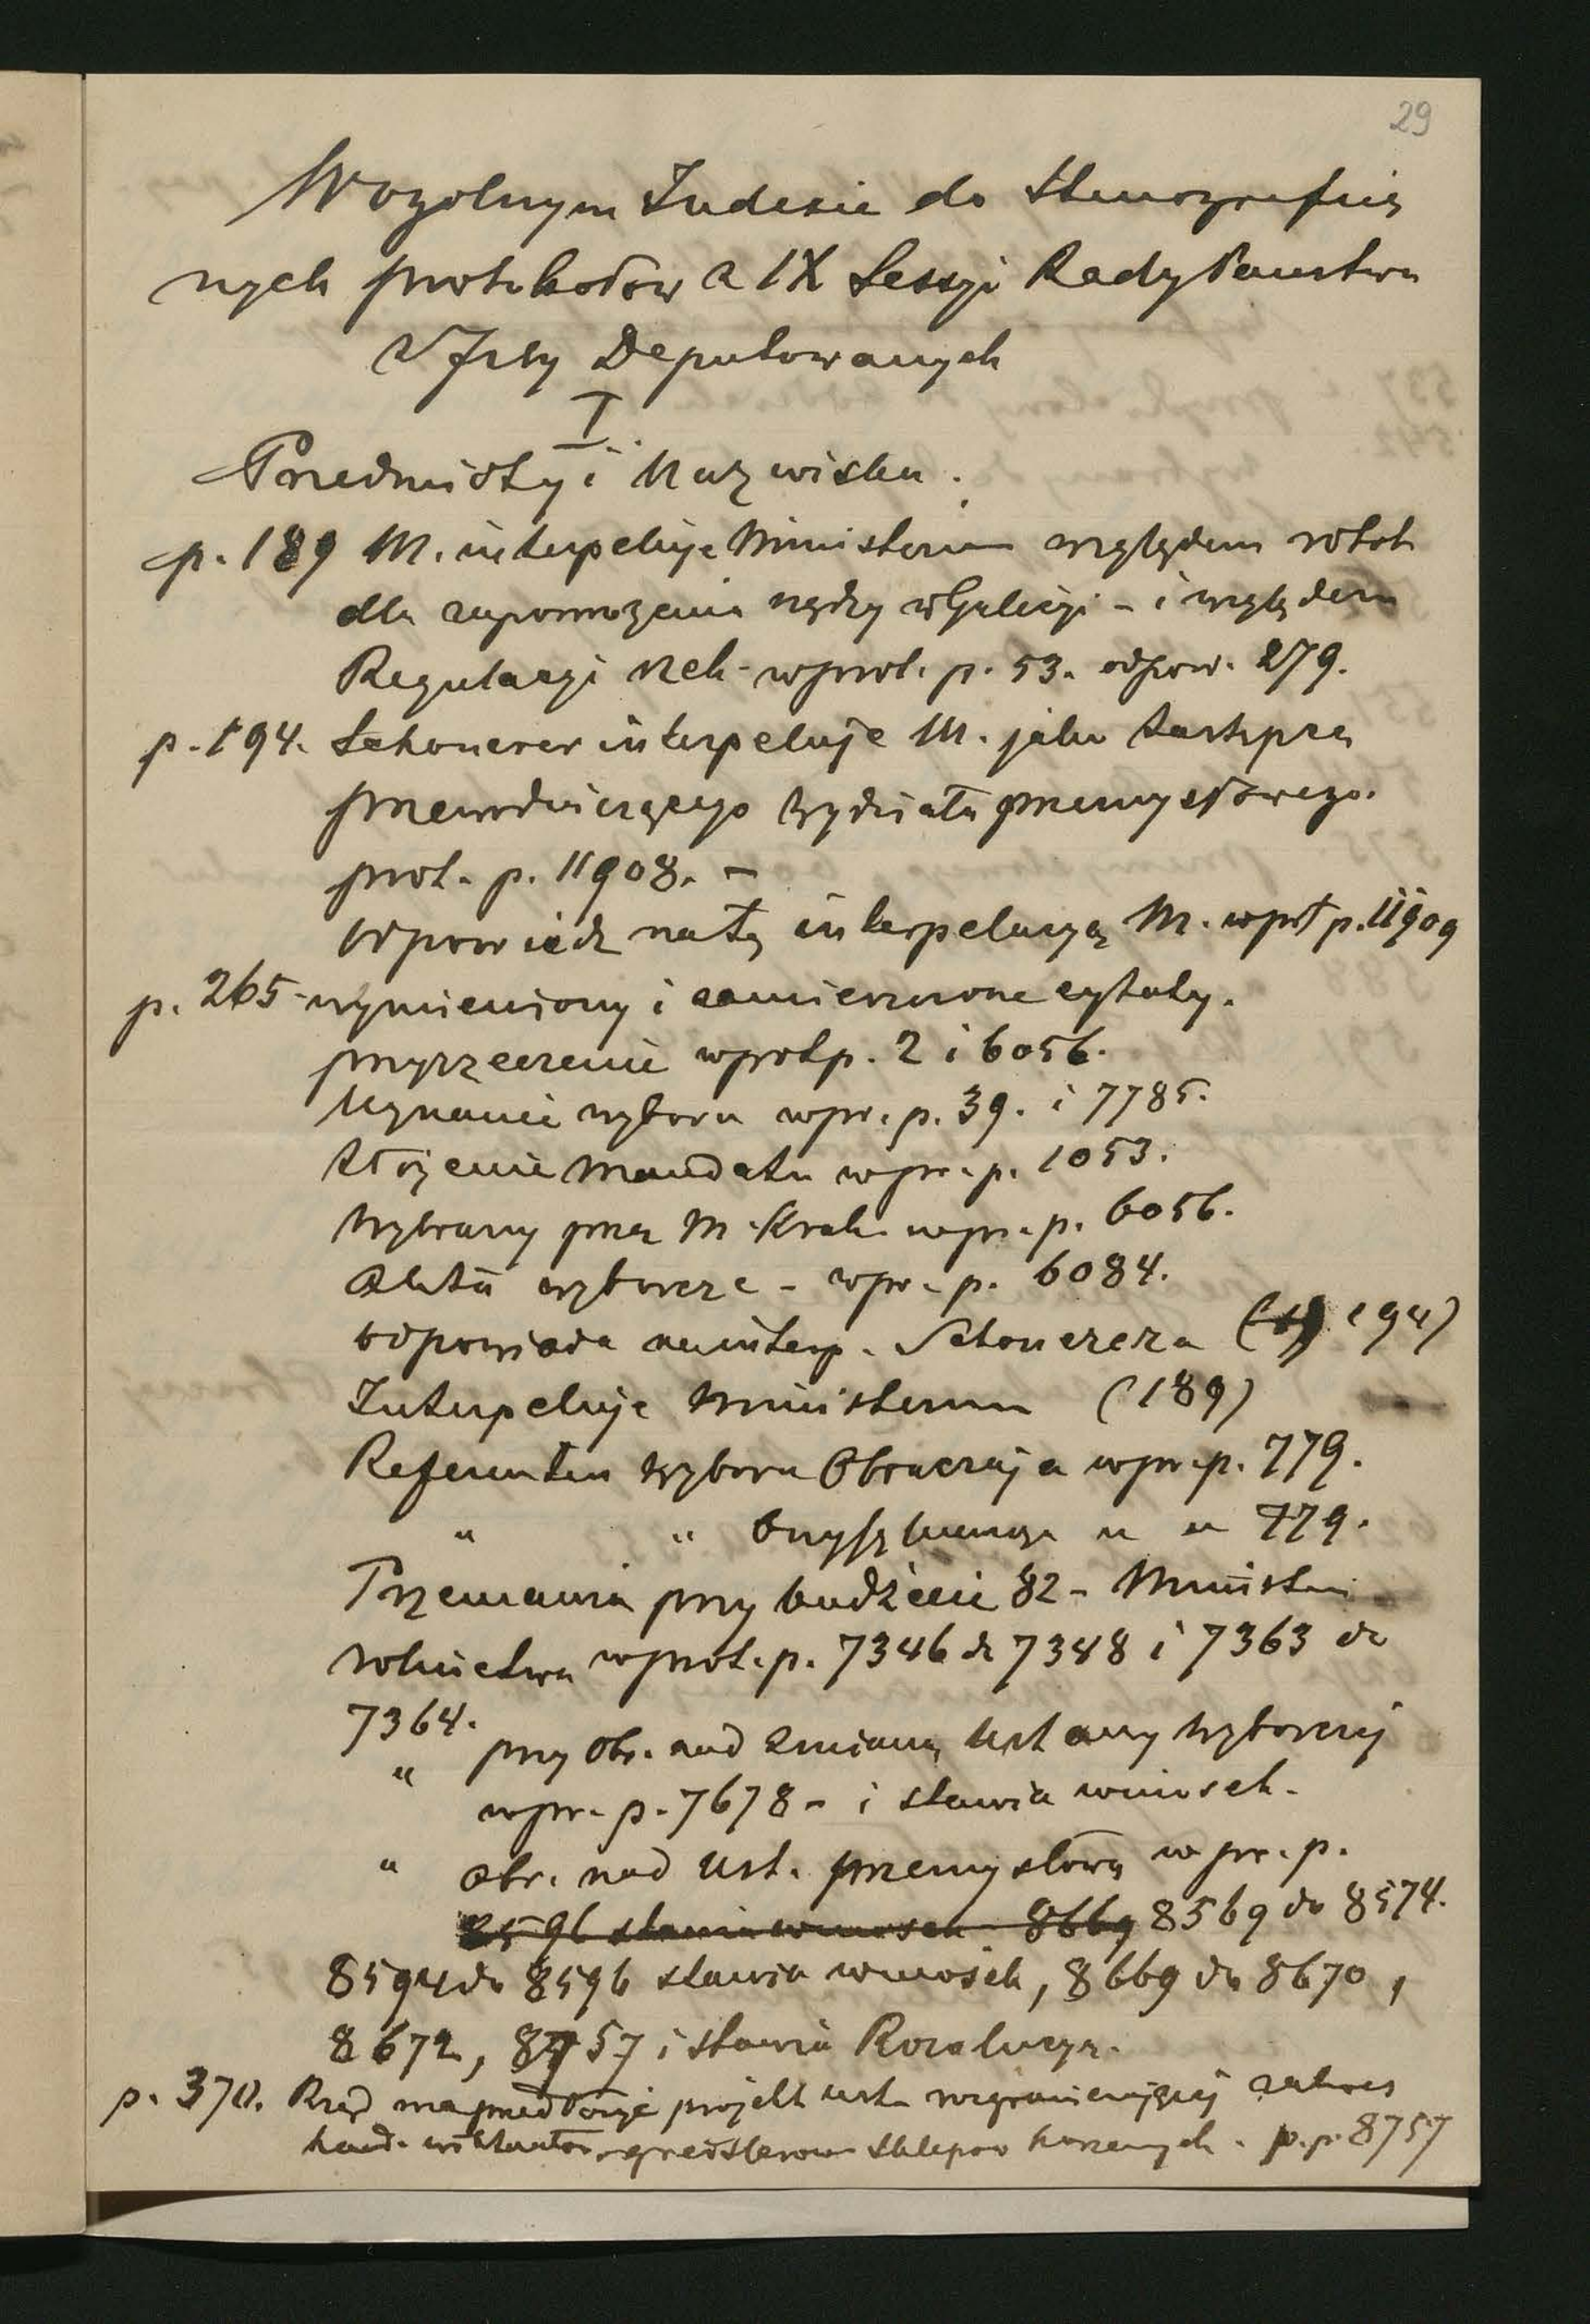 29
W ogolnym Indexie do Stenograficz
nych protokołow z IX Sessyi Rady Panstwa
z Izby Deputowanych
I.
Przedmioty i Nazwiska.
p. 189 M. interpeluje Ministerium względem robot
dla zapomożenia nędzy w Galicyi - i względem
Regulacyi rzek - w prot. p. 53. odpow. 279.
p. 194. Schonerer interpeluje M. jako Zastępcę
przewodniczącego Wydziału przemysłowego.
prot. p. 11908. -
Odpowiedz na tę interpelacyą M. w prot p. 11909
p. 265 - wymieniony i zamieszczone cytaty.
przyrzeczenie w prot p. 2 i 6056.
Uznanie wyboru w pr. p. 39. i 7785.
Złożenie Mandatu w pr. p. 1053.
Wybrany przez M. Krak. w pr. p. 6056.
Akta wyborcze - w pr. p. 6084.
Odpowiada na interp. Schonerera (194)
Interpeluje Ministerium (189)
Referentem Wyboru Obraczaja w pr. p. 779.
" " " " 779.
Przemawia przy budżecie 82 - Ministeri
rolnictwa w prot. p. 7346 do 7348 i 7363 do
7364.
" przy obr. nad zmianą Ustawy Wyborczej
w pr. p. 7678 - i stawia wniosek.
" obr. nad Ust. przemysłową w pr. p.
8596 stawia wniosek 8669 8569 do 8574.
8594 do 8596 stawia wniosek, 8669 do 8670,
8672, 8757 i stawia Rezolucyą.
p. 370. Rząd ma przedłożyć projekt ust. rozgraniczającej zakres
hand. sklepow korzennych. p. p. 8757